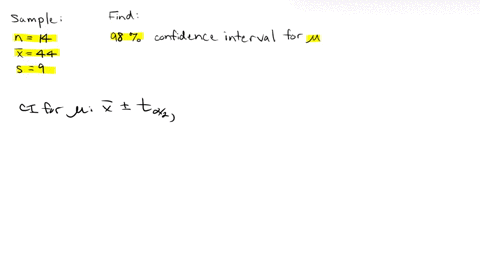 Sample:
n = 14
x̄ = 44
s = 9
Find:
98% confidence interval for μ
CI for μ: x̄ ± t α/2,